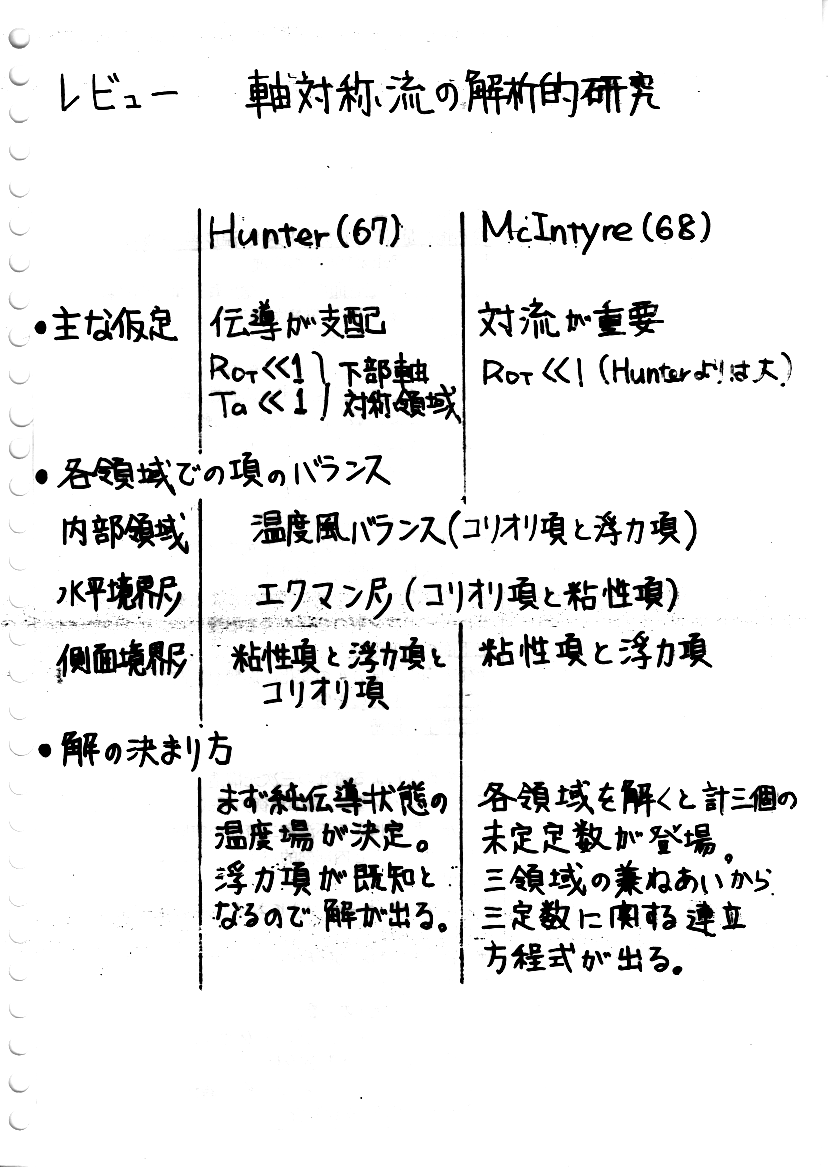 レビュー 軸対称流の解析的研究
Hunter(67) McIntyre(68)
•主な仮定 伝導が支配 対流が重要
RoT≪1 } 下部軸 RoT≪1 (Hunterよりは大)
Ta≪1 } 対称領域
•各領域での項のバランス
内部領域 温度風バランス(コリオリ項と浮力項)
水平境界尸 エクマン尸(コリオリ項と粘性項)
側面境界尸 粘性項と浮力項と 粘性項と浮力項
コリオリ項
•解の決まり方
まず純伝導状態の
温度場が決定。
浮力項が既知と
なるので解が出る。
各領域を解くと計三個の
未定定数が登場。
三領域の兼ねあいから
三定数に関する連立
方程式が出る。